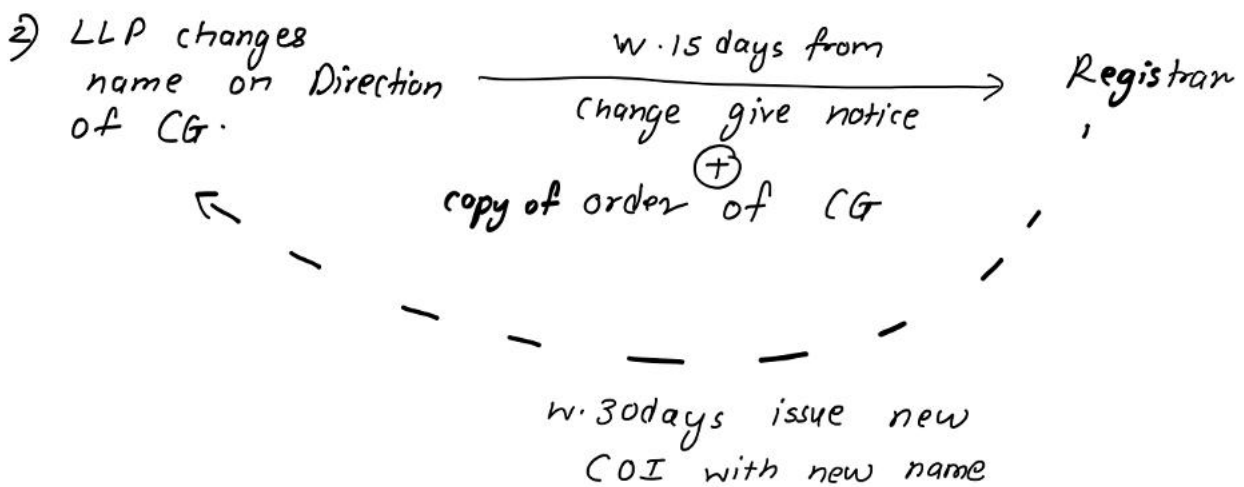 2) LLP changes
name on Direction
of CG.
w.15 days from
change give notice
+
copy of order of CG
Registrar
w.30days issue new
COI with new name